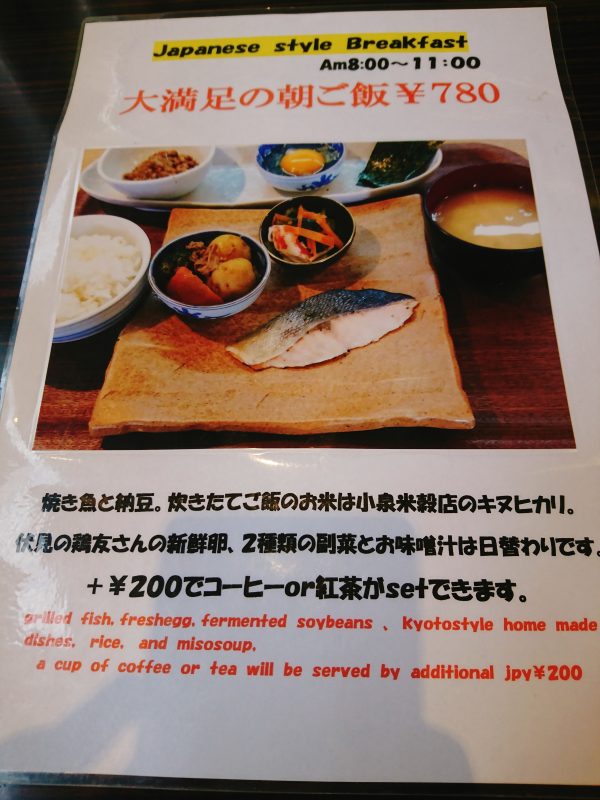 Japanese style Breakfast
Am8:00～11:00
大満足の朝ご飯￥780
焼き魚と納豆。炊きたてご飯のお米は小泉米穀店のキヌヒカリ。
伏見の鶏友さんの新鮮卵、２種類の副菜とお味噌汁は日替わりです。
＋￥200でコーヒーor紅茶がsetできます。
grilled fish, freshegg, fermented soybeans 、 Kyotostyle home made
dishes, rice, and misosoup,
a cup of coffee or tea will be served by additional jpy￥200